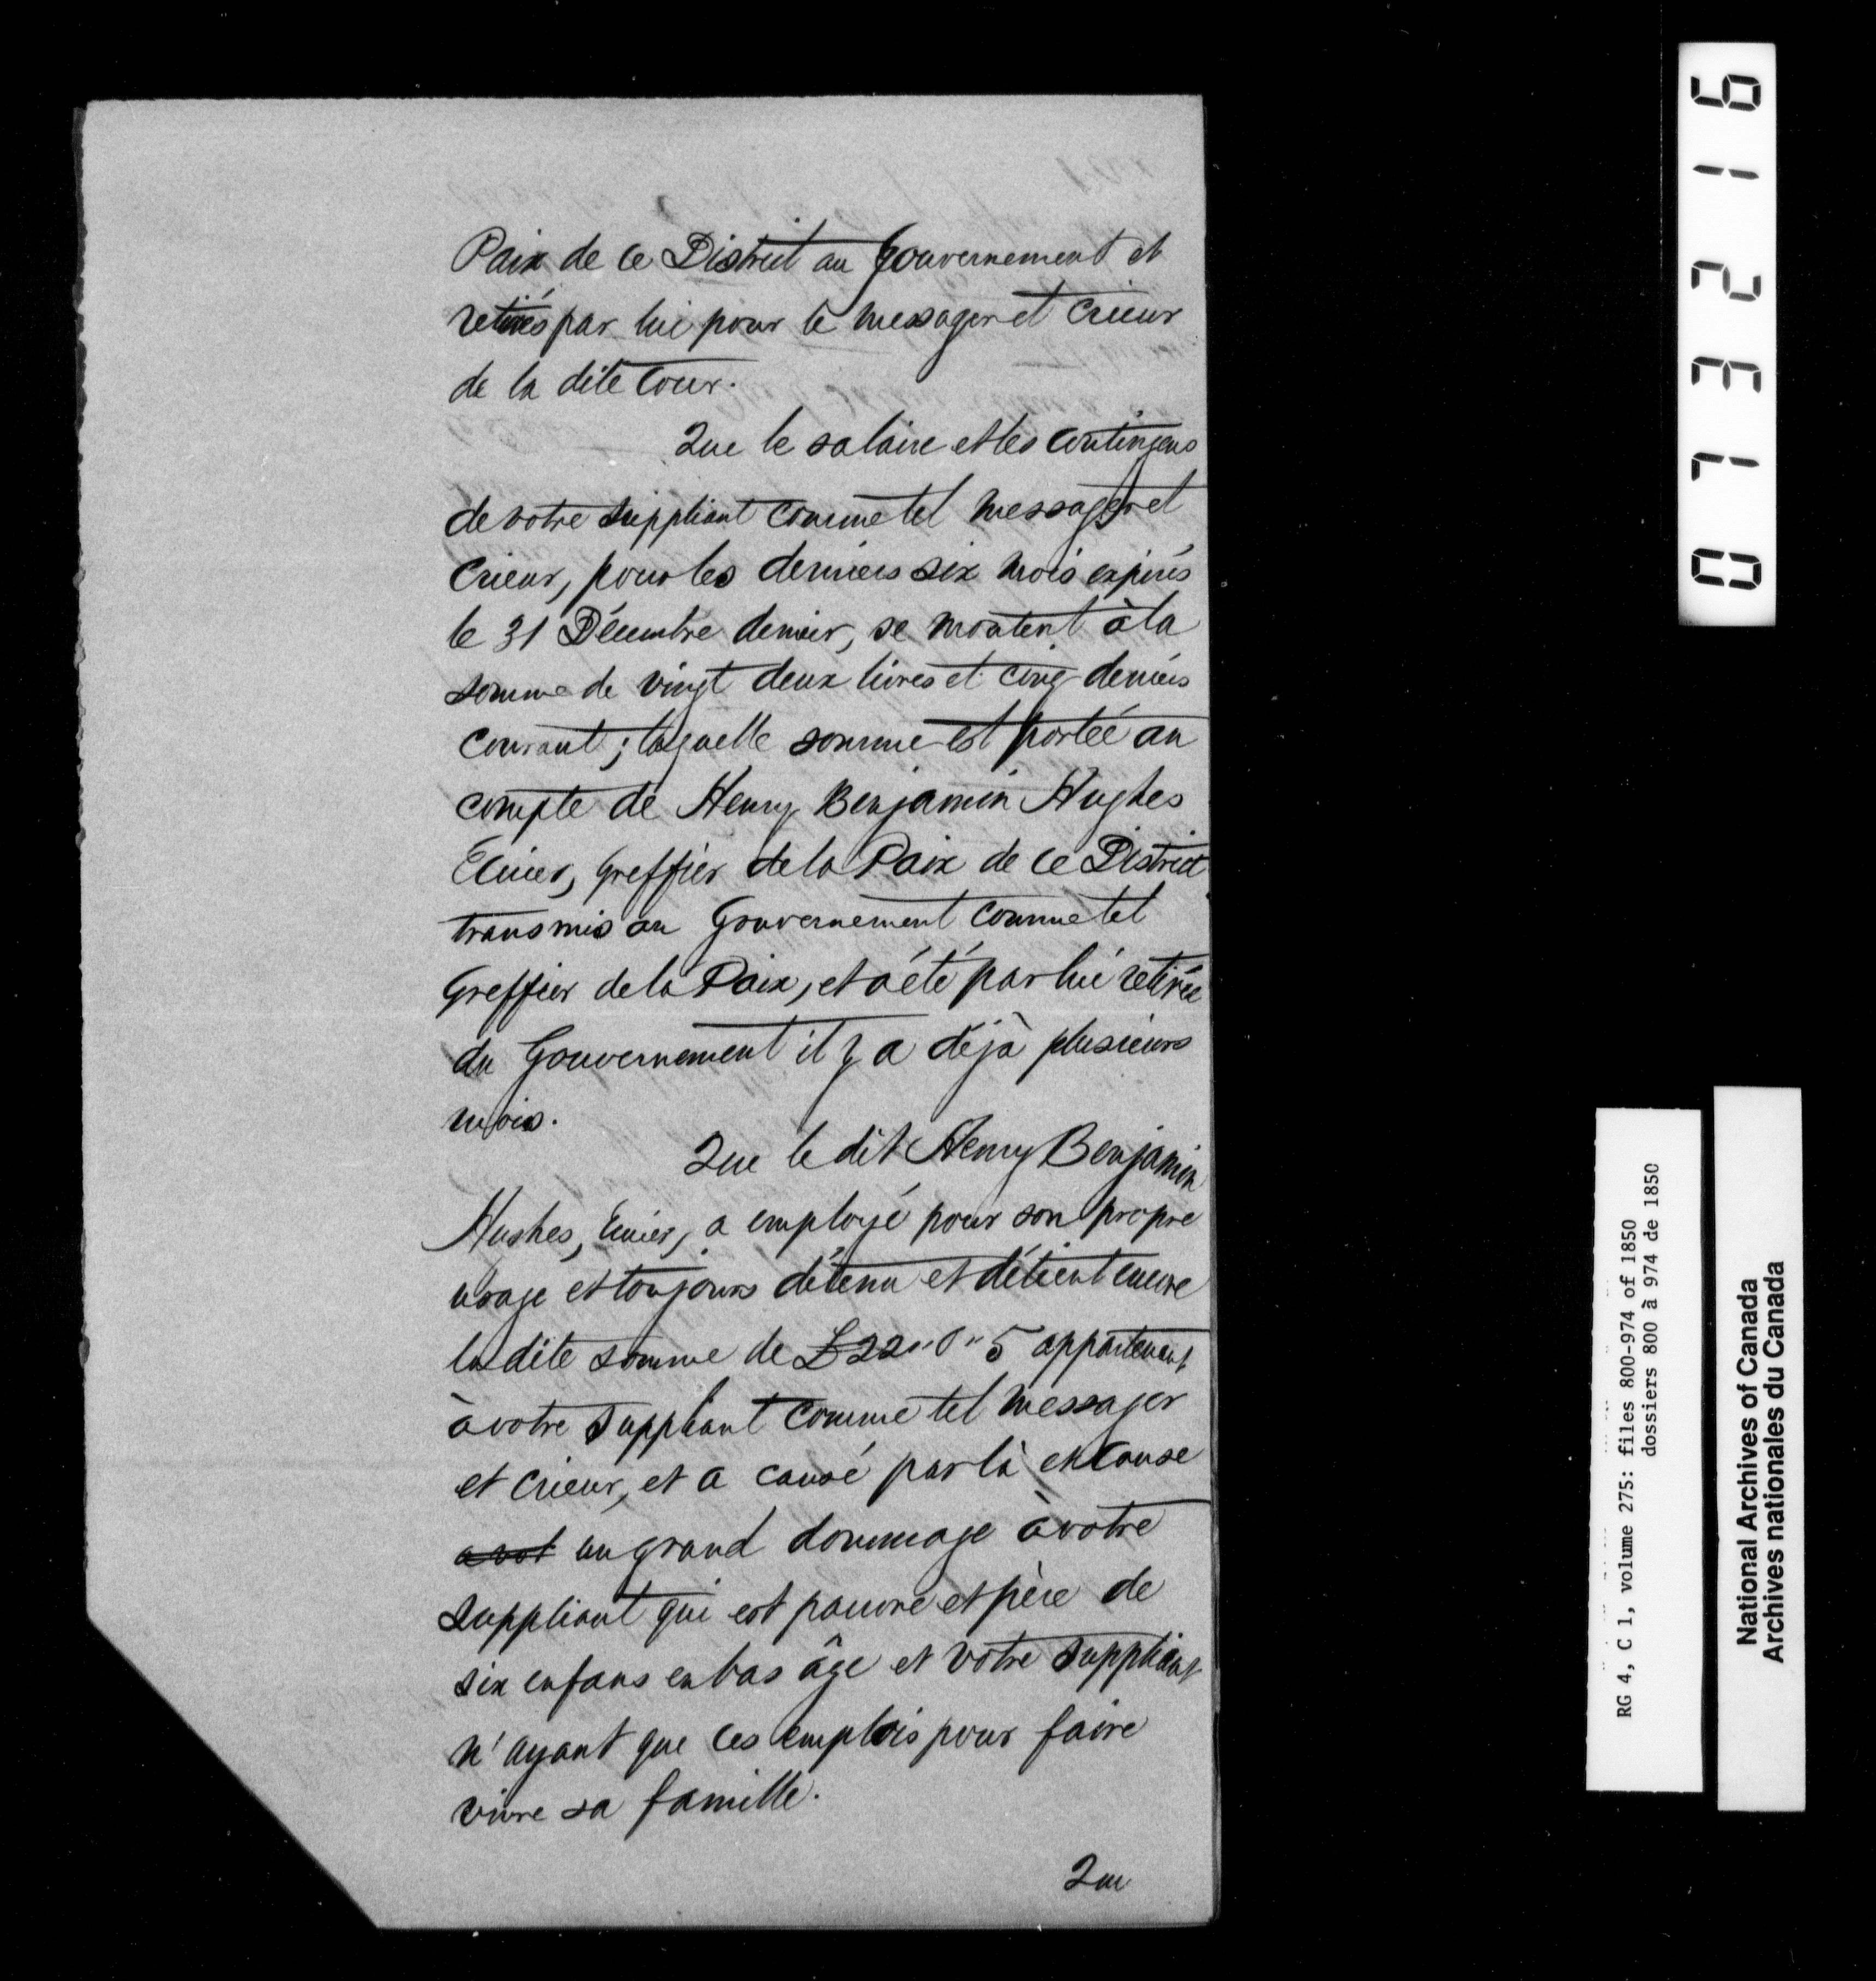 Paix de ce District au Gouvernement et
retirés par lui pour le messager et crieur
de la dite Cour.
Que le salaire et les contingens
de votre Suppliant comme tel messager et
Crieur, pour les derniers six mois expirés
le 31 Décembre dernier, se montent à la
somme de vingt deux livres et cinq deniers
courant ; laquelle somme est portée au
compte de Henry Benjamin Hughes
Ecuier, Greffier de la Paix de ce District
transmis au Gouvernement comme tel
Greffier de la Paix, et a été par lui retirée
du Gouvernement il y a déjà plusieurs
mois.
Que le dit Henry Benjamin
Hushes, Ecuier, a employé pour son propre
usage et toujours détenu et détient encore
la dite somme de £22"0"5 appartenant
à votre Suppliant comme tel messager
et crieur, et a causé par là et cause
a vot un grand dommage à votre
Suppliant qui est pauvre et père de
six enfans en bas âge et votre Suppliant
n'ayant que ces emplois pour faire
vivre sa famille.
Que
073216
RG 4, C 1, volume 275: files 800-974 of 1850
dossiers 800 à 974 de 1850
National Archives of Canada
Archives nationales du Canada